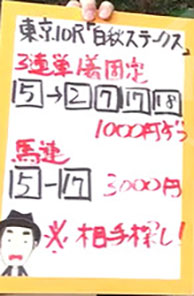 東京10R「白秋ステークス」
3連単1着固定
5→2 7 17 18
1000円ずつ
馬連
5-17 3000円
※相手探し!